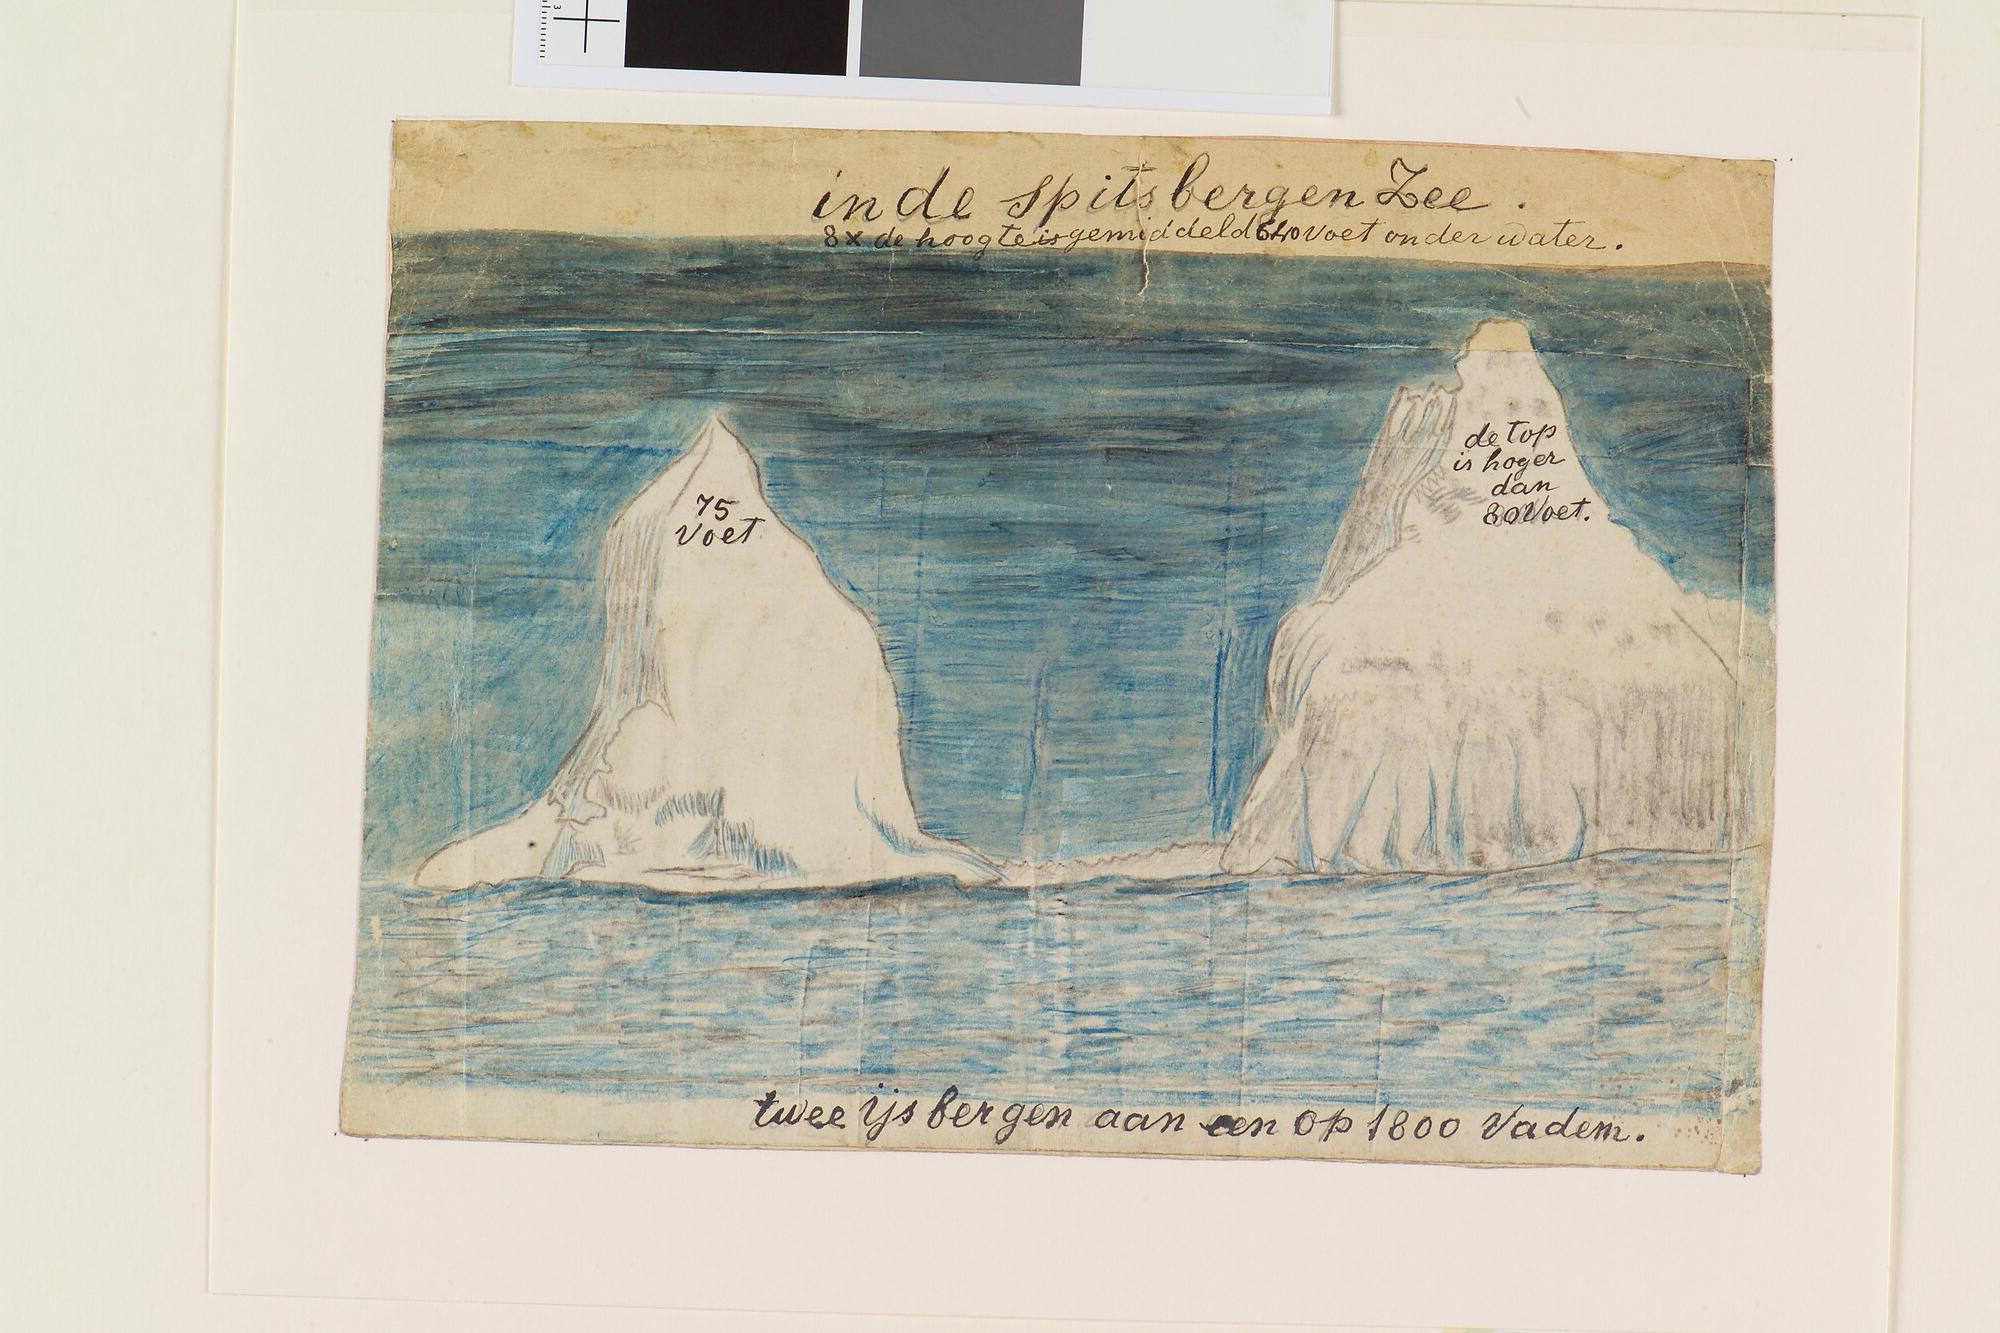 in de spitsbergen Zee.
8x de hoogte is gemiddeld 640 voet onder water.
75
Voet
de top
is hoger
dan
80 Voet.
twee ijs bergen aan een op 1800 Vadem.